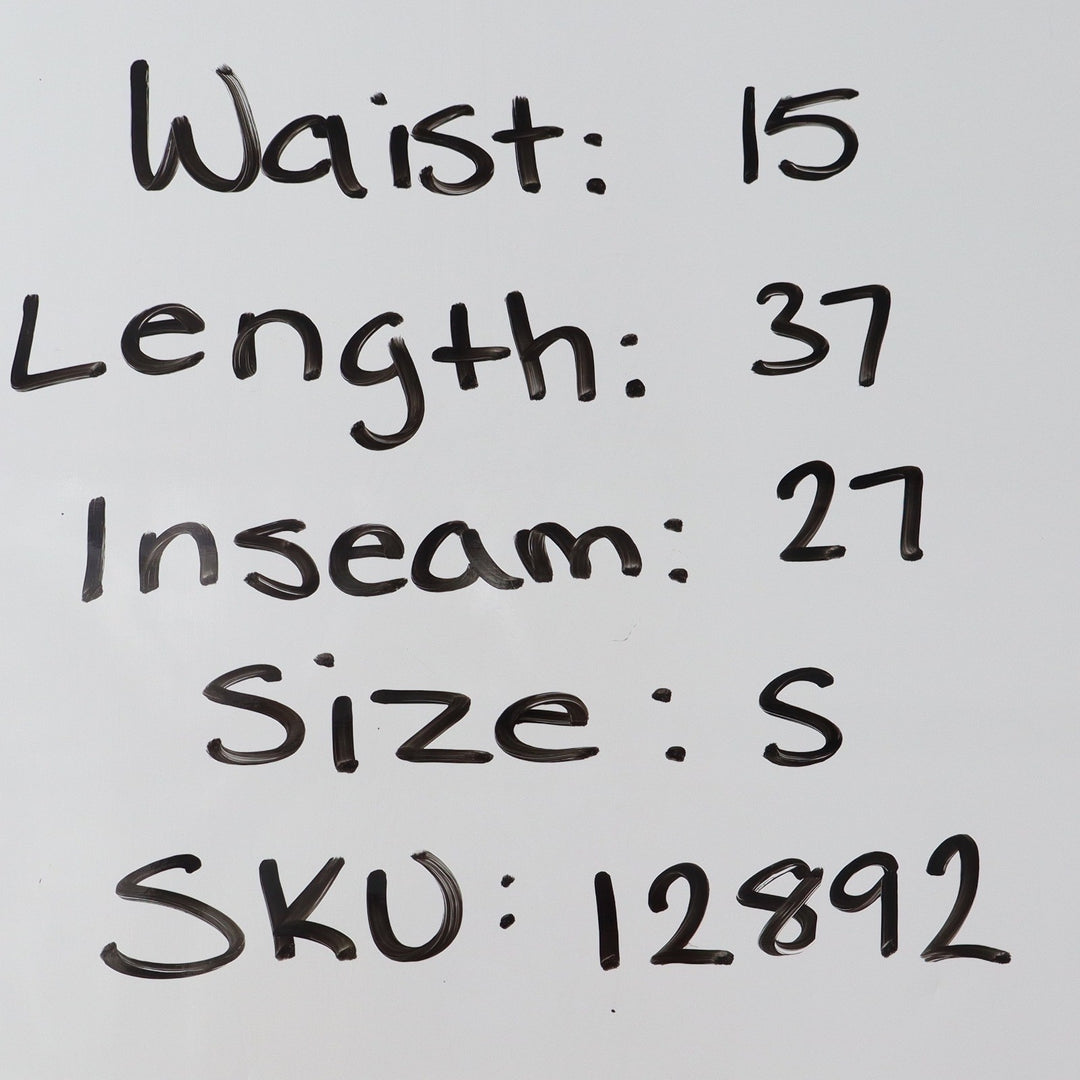 Waist: 15
Length: 37
Inseam: 27
Size: S
SKU: 12892